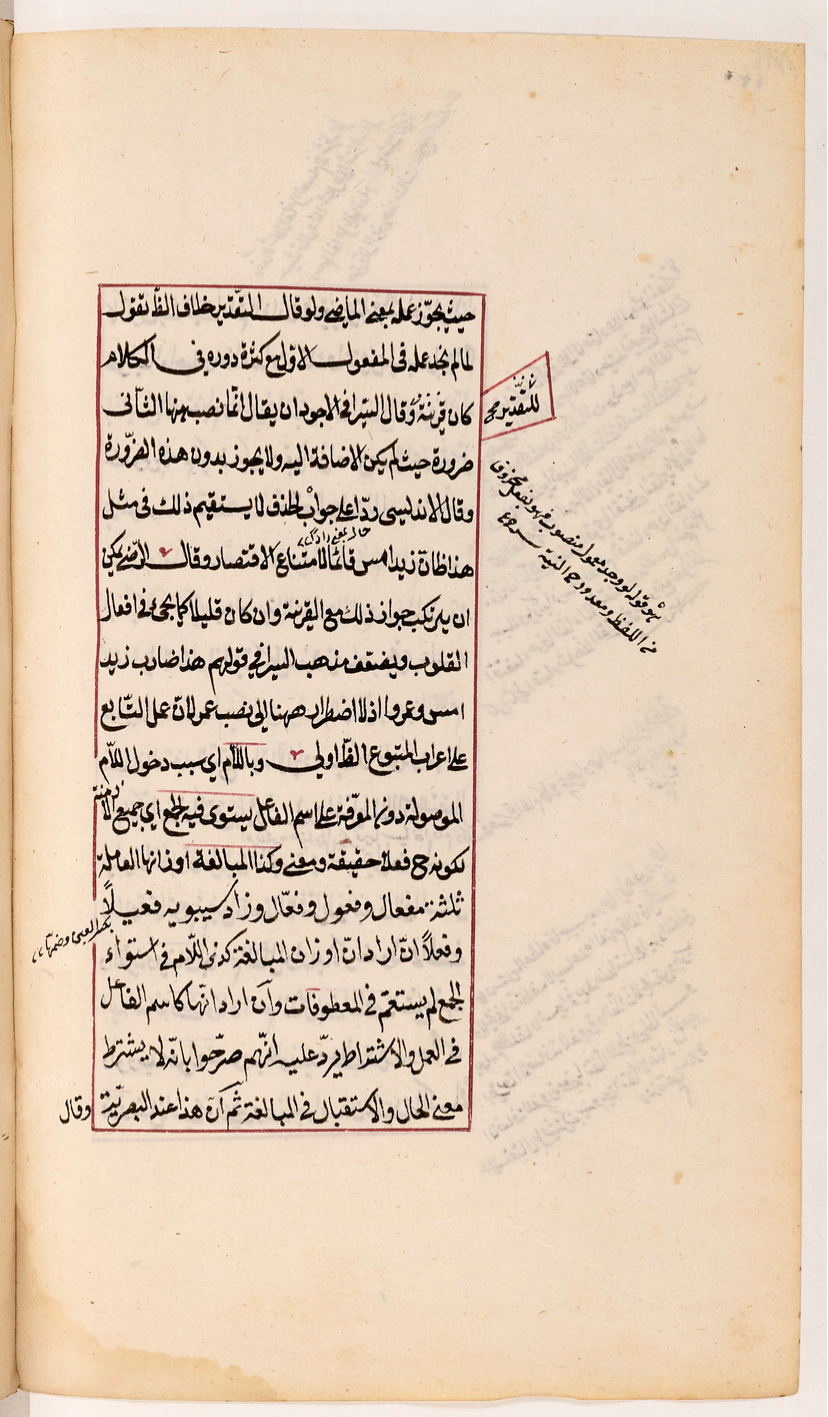 حيث يجوّز عمله بمعنى الماضى ولو قال التقدير خلاف الظّ نقول
لما لم نجد عمله فى المفعول الاول مع كثرة دوره فى الكلام
كان قرينة وقال السيرافى الاجود ان يقال انّما نصب ههنا الثانى
ضرورة حيث لم يكن الاضافة اليه ولا يجوز بدون هذه الضرورة
وقال الاندلسى ردّا على جواب الحذف لا يستقيم ذلك فى مثل
هذا ظانّ زيد امس قائما لامتناع الاقتصار وقال الرضى يمكن
ان يرتكب جواز ذلك مع القرينة وان كان قليلا كما يجئ فى افعال
القلوب ويضعّف مذهب السيرافى قولهم هذا ضارب زيد
امس وعمروا اذ لا اضطرار ههنا الى نصب عمر لانّ حمل التابع
على اعراب المتبوع الظّ اولى وباللّام اى سبب دخول اللّام
الموصولة دون المعرّفة على اسم الفاعل يستوى فيه الجمع اى جميع الازمنة
لكونه ح فعلا حقيقة ومعنى وكذا المبالغة اوزانها العاملة
ثلثة مفعال وفعول وفعّال وزاد سيبويه فعيلاً
وفعلاً انّ اراد انّ اوزان المبالغة كذى اللّام فى استواء
الجمع لم يستقم فى المعطوفات وان اراد انّها كاسم الفاعل
فى العمل والاشتراط يردّ عليه انّهم صرّحوا بانّه لا يشترط
معنى الحال والاستقبال فى المبالغة ثم انّ هذا عند البصريّين
وقال
للتقدير صح
بكسر العين وضمها